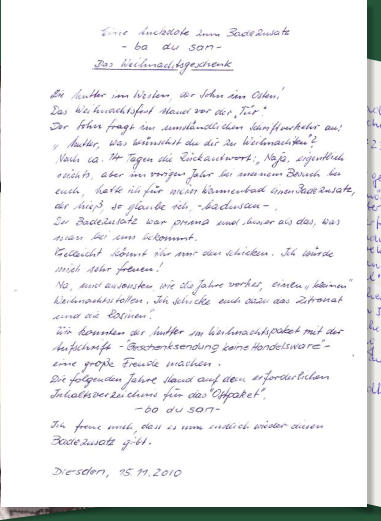 Eine Anekdote zum Badezusatz
- ba du san -
Das Weihnachtsgeschenk
Die Mutter im Westen, der Sohn im Osten!
Das Weihnachtsfest stand vor der „Tür".
Der Sohn fragt im umständlichen Schriftverkehr an:
„Mutter, was wünschst du dir zu Weihnachten"?
Nach ca. 14 Tagen die Rückantwort: „Naja, eigentlich
nichts, aber im vorigen Jahr bei meinem Besuch bei
euch, hatte ich für mein Wannenbad einen Badezusatz,
der hieß, so glaube ich, - badusan -.
Der Badezusatz war prima und besser als das, was
man bei uns bekommt.
Vielleicht könnt ihr mir den schicken. Ich würde
mich sehr freuen!
Na, und ansonsten wie die Jahre vorher, einen „kleinen"
Weihnachtsstollen. Ich schicke euch dazu das Zitronat
und die Rosinen".
Wir konnten der Mutter im Weihnachtspaket mit der
Aufschrift - "Geschenksendung keine Handelsware" -
eine große Freude machen.
Die folgenden Jahre stand auf dem erforderlichen
Inhaltsverzeichnis für das "Ostpaket",
- ba du san -
Ich freue mich, dass es nun endlich wieder diesen
Badezusatz gibt.
Dresden, 15.11.2010